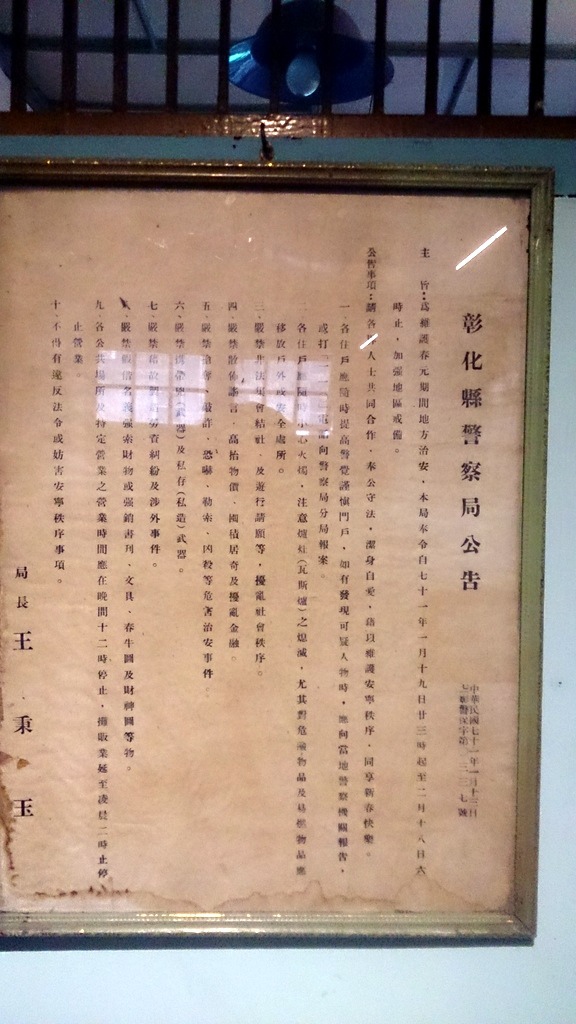 彰化縣警察局公告
中華民國七十一年一月十三日
主　旨：為維護春元期間地方治安，本局奉令自七十一年一月十九日廿三時起至二月十八日六
時止，加強地區戒備。
公告事項：請各界人士共同合作、奉公守法，潔身自愛，藉以維護安寧秩序，同享新春快樂。
一、各住戶應隨時提高警覺謹慎門戶，如有發現可疑人物時，應向當地警察機關報告、
或打一一〇電話向警察局分局報案。
二、各住戶應隨時小心火燭，注意爐灶(瓦斯爐)之熄滅，尤其對危險物品及易燃物品應
移放戶外或安全處所。
三、嚴禁非法集會結社、及遊行請願等，擾亂社會秩序。
四、嚴禁散佈謠言，高抬物價、囤積居奇及擾亂金融。
五、嚴禁搶奪、敲詐、恐嚇、勒索、凶殺等危害治安事件
六、嚴禁攜帶凶器(武器)及私存(私造)武器。
七、嚴禁藉故製造勞資糾紛及涉外事件。
八、嚴禁假借名義強索財物或強銷書刊、文具、春牛圖及財神圖等物。
九、各公共場所及特定營業之營業時間應在晚間十二時停止，攤販業延至凌晨二時止停
止營業。
十、不得有違反法令或妨害安寧秩序事項。
局長 王 秉 玉